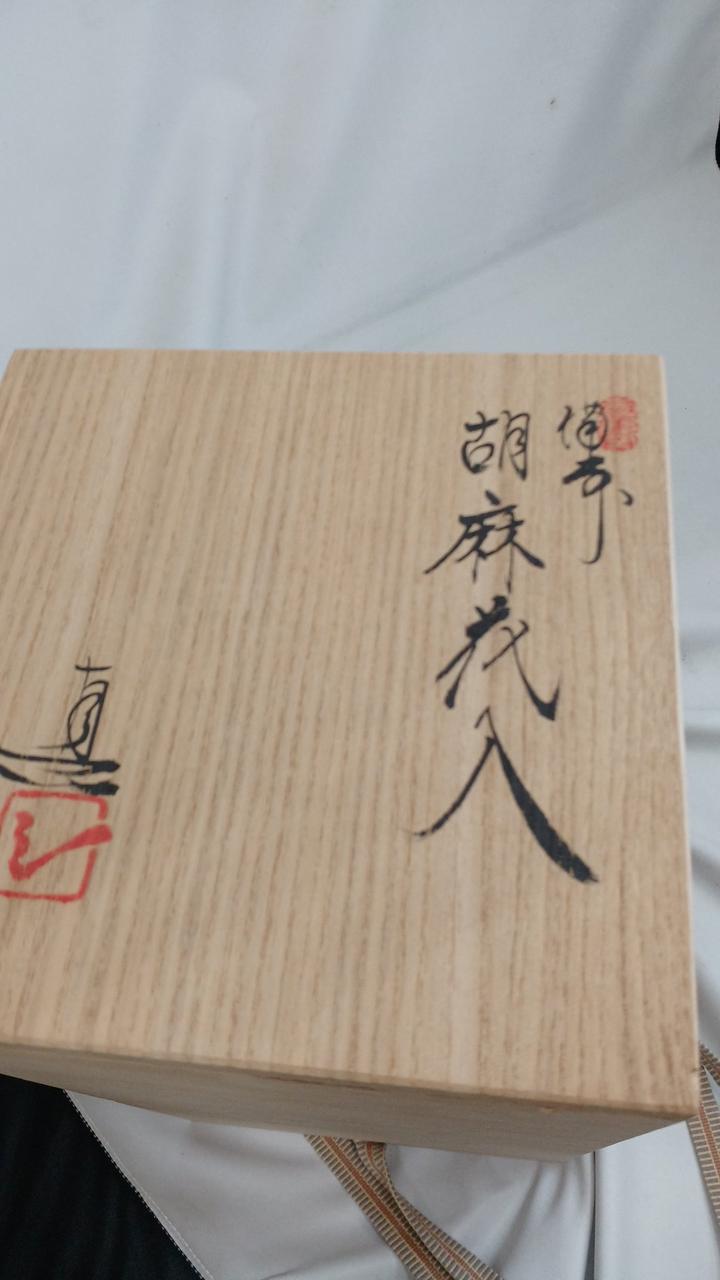 備前
胡麻花入
直